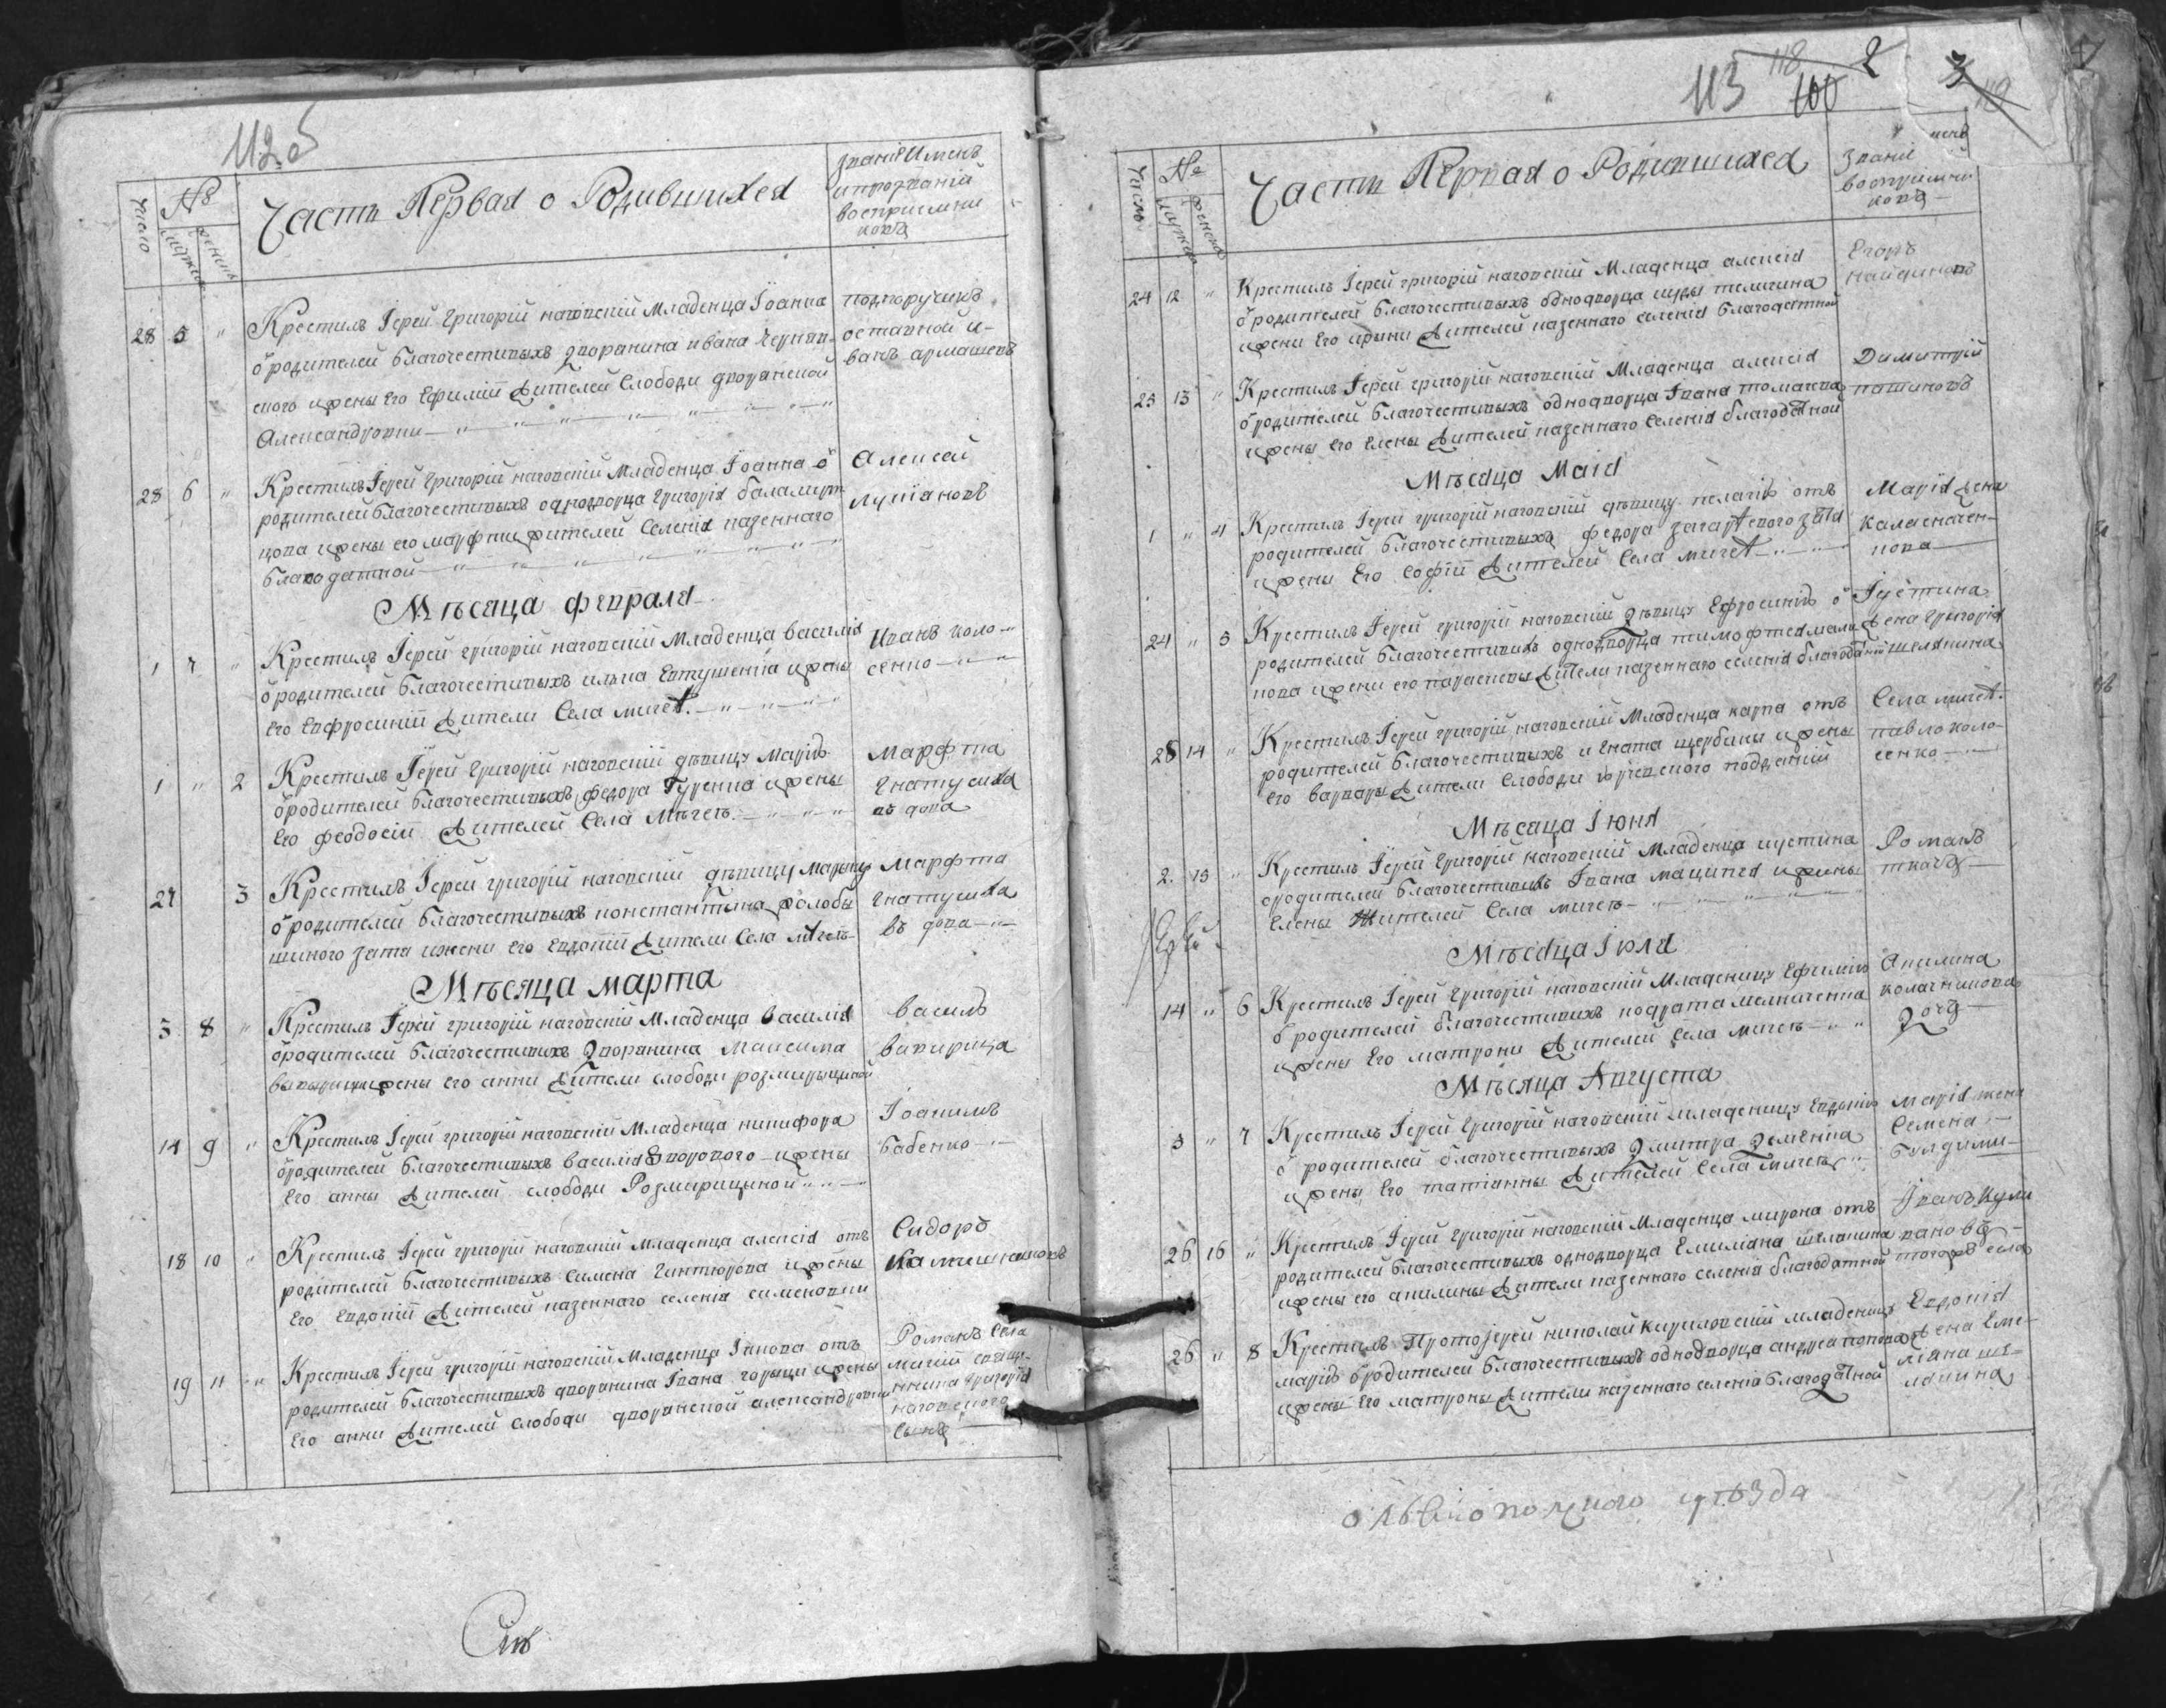 112 об
Число
№
мужеск
женск
Часть Первая о Родившихся
званіе Именъ
и прозваній
воспріемни
ковъ
28 5 " Крестилъ Іерей Григорій наговскій Младенца Іоанна
ѿ родителей Благочестивыхъ дворянина ивана Чернов-
ского и жены Его Ефиміи Жителей Слободи дворянской
Александровки
подпоручикъ
оставной и-
ванъ армашевъ
28 6 " Крестилъ Іерей Григорій наговскій Младенца Іоанна ѿ
родителей Благочестивыхъ однодворца Григорія баламут
цова и жены его марфи жителей Селенія казеннаго
Благодатной
Алексей
лукіановъ
Мѣсяца февраля
1 7 " Крестилъ Іерей григорій наговскій Младенца василія
ѿ родителей Благочестивыхъ ильиа Евтушенка и жены
Его Евфросиніи Жители Села мигеѧ
Иванъ коло-
сенко
1 " 2 Крестилъ Іерей Григорій наговскій дѣвицу Марію
ѿ родителей Благочестивыхъ федора Гуренка и жены
Его феодосіи Жителей Села Мигеѣ
Марфта
Гнатусиха
въдова
27 3 Крестилъ Іерей григорій наговскій дѣвицу Марыну
ѿ родителей Благочестивыхъ константына Жолобы
шиного зата и жени Его Евдокіи Жители Села
Марфта
Гнатусиха
въ дова
Мѣсяца марта
3 8 " Крестилъ Іерей григорій наговскій Младенца василія
ѿ родителей Благочестивихъ Дворянина Максима
и жены его анни Жители слободи розмирыцкой
василъ
14 9 " Крестилъ Іерей григорій наговскій Младенца никифора
ѿ родителей Благочестивыхъ василія Яворового и жены
Его анны Жителей слободи Розмирицкой
Іоакимъ
бабенко
18 10 " Крестилъ Іерей григорій наговскій младенца алексія отъ
родителей Благочестивыхъ Симена Гинтюрова и жены
Его Евдокіи Жителей казеннаго селенія сименовки
Сидоръ
19 11 " Крестилъ Іерей григорій наговскій Младенца Іакова отъ
родителей Благочестивыхъ дворянина Івана горыци и жены
Его анни Жителей слободи дворянской александровки
Романъ Села
мигіи священ-
ника григорія
наговского
сынъ
113 118 100 2 3 119
Число
№
мужеск
женска
Часть Первая о Родившихся
Званіе
воспріемни
ковъ
24 12 " Крестилъ Іерей григорій наговскій Младенца алексія
ѿ родителей Благочестивыхъ однодворца иуды телегина
и жени Его ирыни Жителей казеннаго селенія благодатной
Егоръ
найдиновъ
25 13 " Крестилъ Іерей григорій наговскій Младенца алексія
ѿ родителей Благочестивыхъ однодворца Івана толмачева
и жены Его Елены Жителей казеннаго Селенія благодатной
Димитрій
пашиновъ
Мѣсяца Маія
1 " 4 Крестилъ Іерей григорій наговскій дѣвицу пелагію отъ
родителей Благочестивыхъ федора захарѧевого зятя
и жени Его Софіи Жителей Села мигеѧ
Марія жена
24 " 5 Крестилъ Іерей григорій наговскій дѣвицу Ефросинію ѿ
родителей Благочестивихъ однодворца тимофтея мали
нова и жени его параскевы Жители казеннаго селенія благодатной
Іустина
жена григорія
шелякина
28 14 " Крестилъ Іерей григорій наговскій Младенца карпа отъ
родителей Благочестивыхъ игната щербини и жены
Его варвары Жители слободи подданій
Села мигеѧ
павло коло-
сенко
Мѣсяца Іюня
2. 15 " Крестилъ Іерей Григорій наговскій Младенца иустина
ѿ родителей благочестивихъ Івана маципея и жены
Елены Жителей Села мигеѣ
Романъ
ткачъ
Мѣсяца Іюля
14 " 6 Крестилъ Іерей Григорій наговскій Младеницу Ефимію
ѿ родителей благочестивихъ кодрата мелниченка
и жены Его матрони Жителей Села мигеѣ
Акилина
колачникова
дочъ
Мѣсяца Августа
3 " 7 Крестилъ Іерей Григорій наговскій Младеницу Евдокію
ѿ родителей благочестивыхъ Дмитра Деменка
и жены Его татіанны Жителей Села мигеѣ
Марія жена
Семена
26 16 " Крестилъ Іерей Григорій наговскій Младенца мирона отъ
родителей Благочестивыхъ однодворца Емиліана шелякина
и жены его акилины Жители казеннаго селенія благодатной
Іванъ кули
кановъ
тогожъ села
26 " 8 Крестилъ Протоіерей николай кириловскій младеницу
марію ѿ родителей Благочестивыхъ однодворца андреа попова
и жены Его матроны Жители казеннаго селенія Благодатной
Евдокія
жена Еме-
ліана ше-
лякина
уѣзда